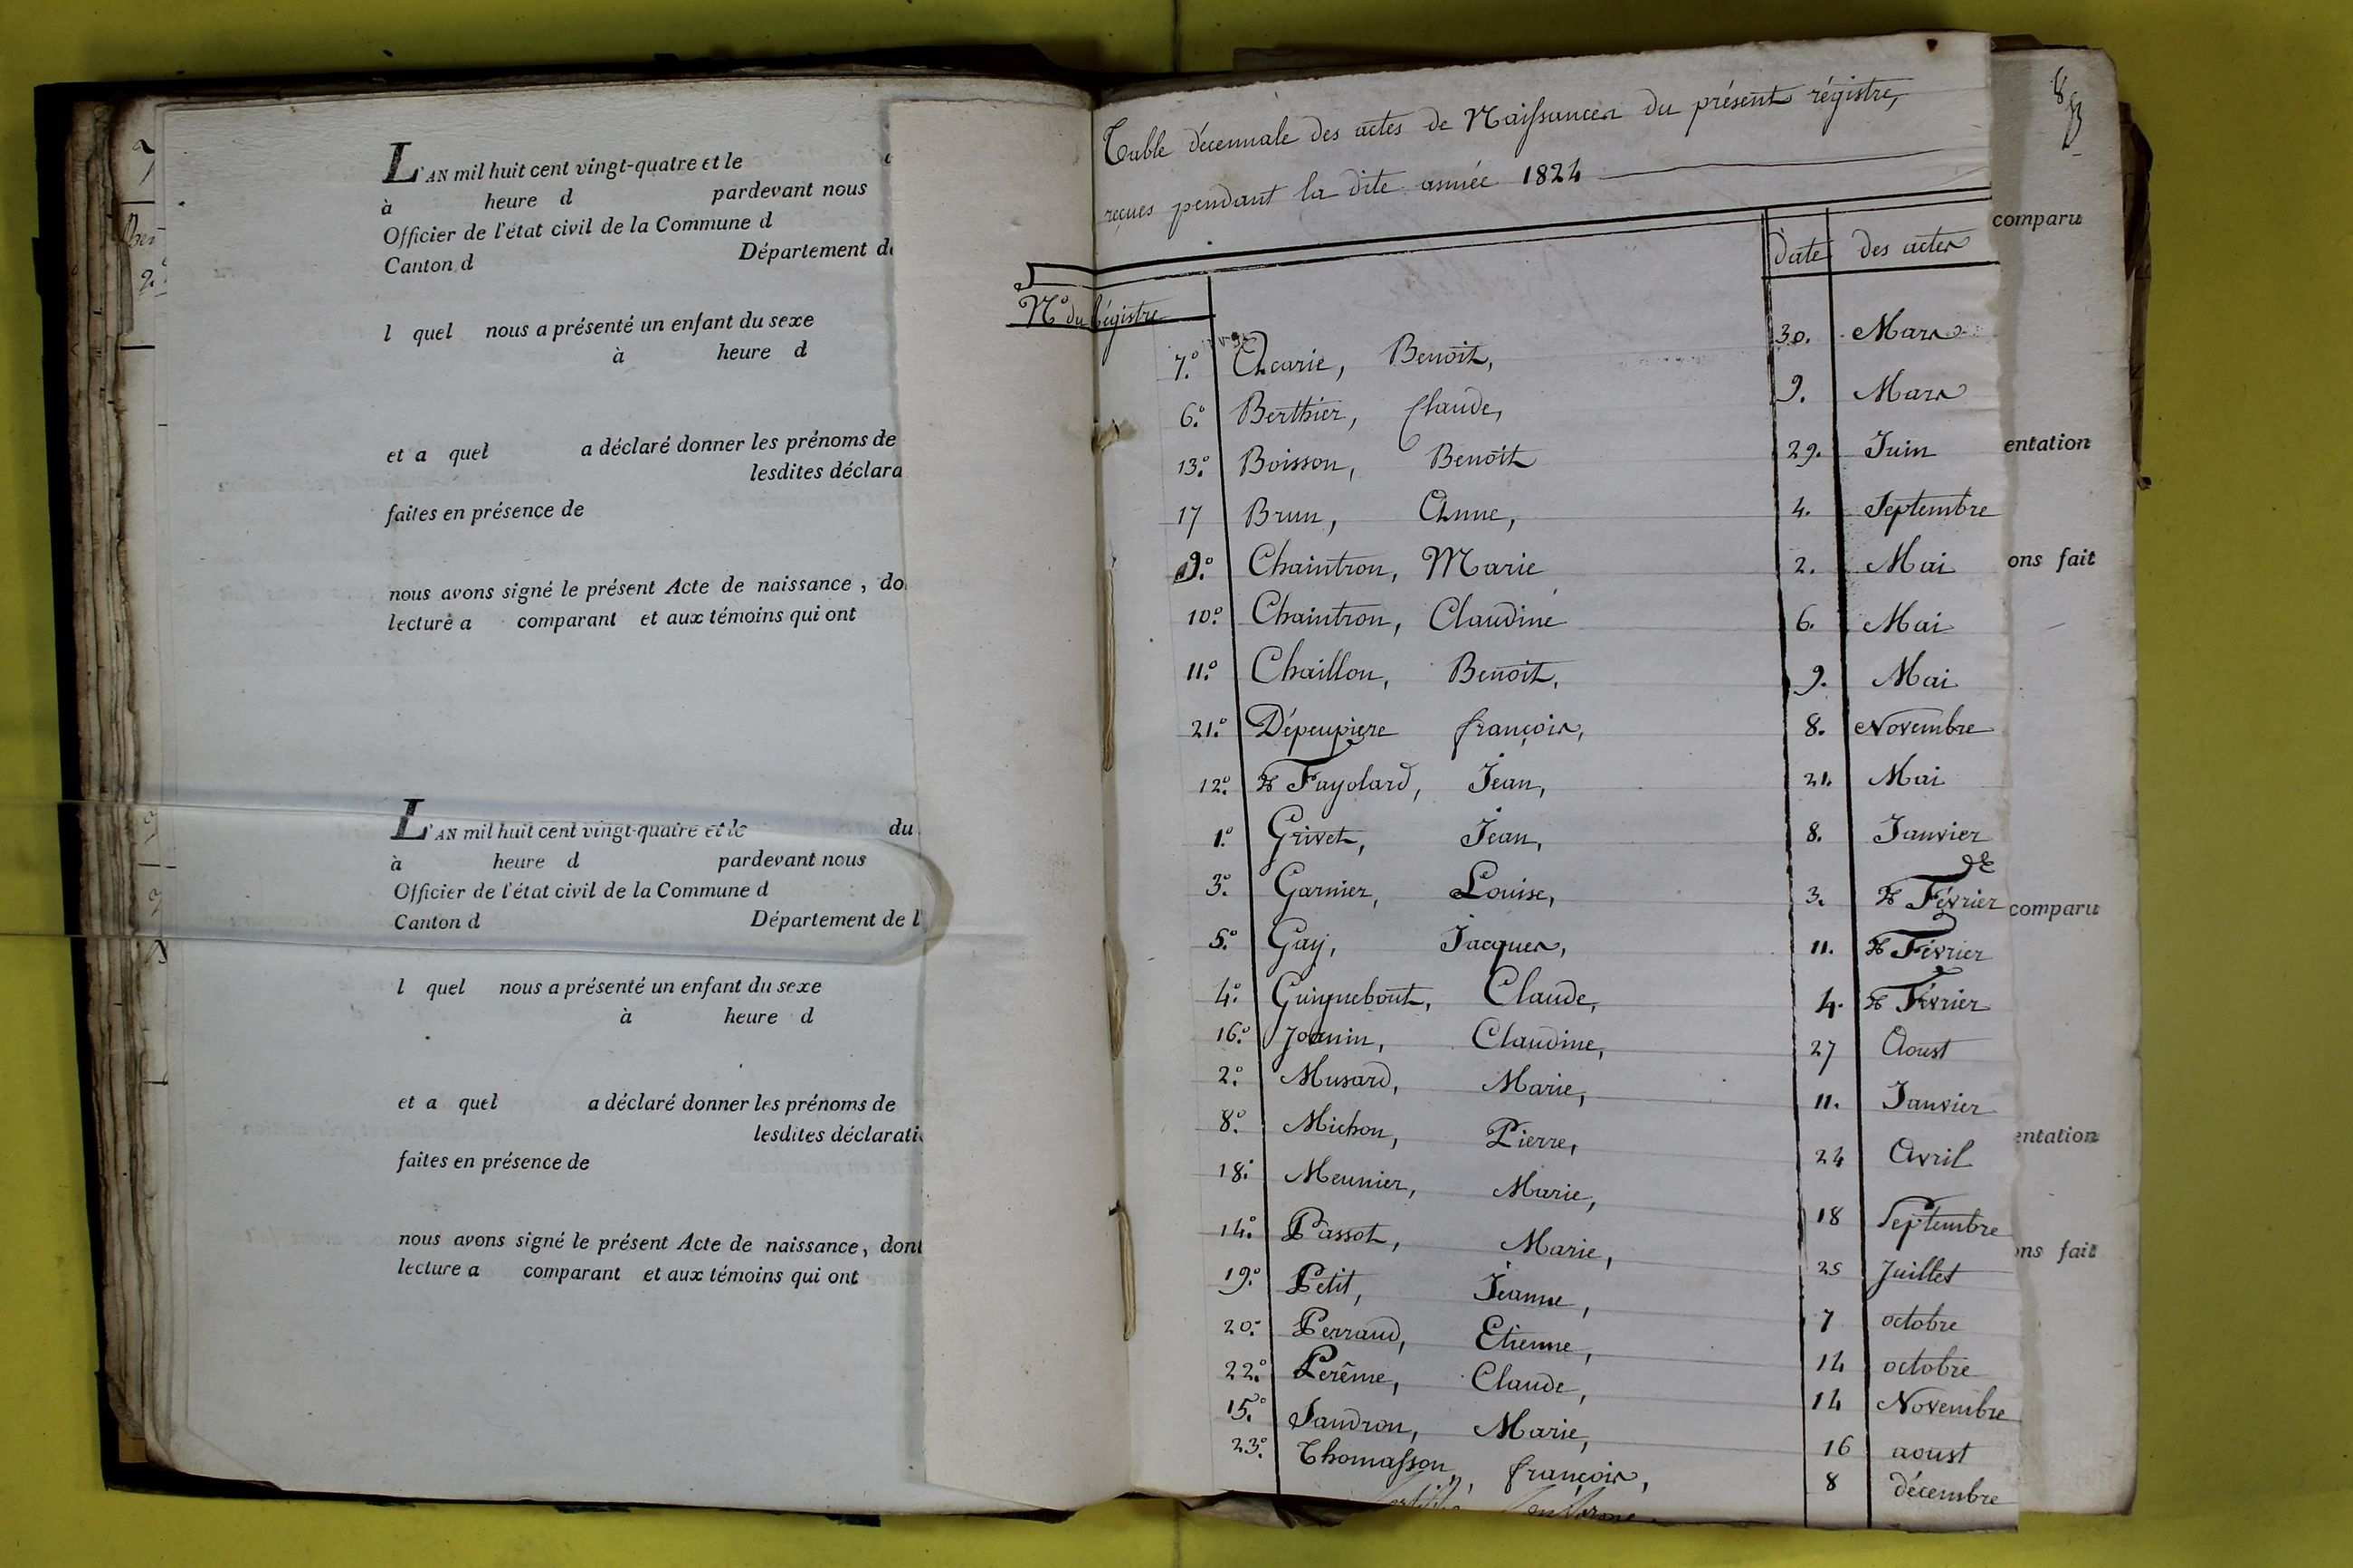 L'AN mil huit cent vingt-quatre et le
à heure d pardevant nous
Officier de l'état civil de la Commune d
Canton d Département de
l quel nous a présenté un enfant du sexe
à heure d
et a quel a déclaré donner les prénoms de
lesdites déclara
faites en présence de
nous avons signé le présent Acte de naissance, do
lecture a comparant et aux témoins qui ont
L'AN mil huit cent vingt-quatre et le du
à heure d pardevant nous
Officier de l'état civil de la Commune d
Canton d Département de l
l quel nous a présenté un enfant du sexe
à heure d
et a quel a déclaré donner les prénoms de
lesdites déclarati
faites en présence de
nous avons signé le présent Acte de naissance, dont
lecture a comparant et aux témoins qui ont
Table décennale des actes de Naissances du présent régistre,
reçues pendant la dite année 1824
N° du Régistre date des actes
7.° Acarie, Benoit, 30. Mars
6.° Berthier, Claude, 9. Mars
13.° Boisson, Benoit 29. Juin
17 Brun, Anne, 4. Septembre
9.° Chaintron, Marie 2. Mai
10.° Chaintron, Claudine 6. Mai
11.° Chaillon, Benoit, 9. Mai
21.° Dépeupiere françois, 8. Novembre
12.° Fayolard, Jean, 21. Mai
1.° Grivet, Jean, 8. Janvier
3.° Garnier, Louise, 3. Février
5.° Gay, Jacques, 11. Février
4.° Guiguebout, Claude, 4. Février
16.° Joanin, Claudine, 27 Aoust
2.° Musard, Marie, 11. Janvier
8.° Michon, Pierre, 24 Avril
18.° Meunier, Marie, 18 Septembre
14.° Passot, Marie, 25 Juillet
19.° Petit, Jeanne, 7 octobre
20.° Perraud, Etienne, 14 octobre
22.° Perême, Claude, 14 Novembre
15.° Sandron, Marie, 16 aoust
23.° Thomasson, françois, 8 décembre
comparu
entation
ons fait
comparu
entation
ons fait